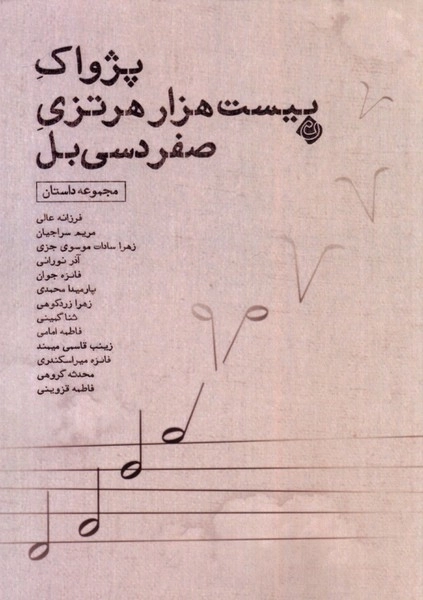 پژواکِ
بیست هزار هرتزیِ
صفر دسی بل
مجموعه داستان
فرزانه عالی
مریم سراجیان
زهرا سادات موسوی جزی
آذر نورانی
فائزه جوان
پارمیدا محمدی
زهرا زردکوهی
ثنا کمینی
فاطمه امامی
زینب قاسمی میمند
فائزه میراسکندری
محدثه گروهی
فاطمه قزوینی